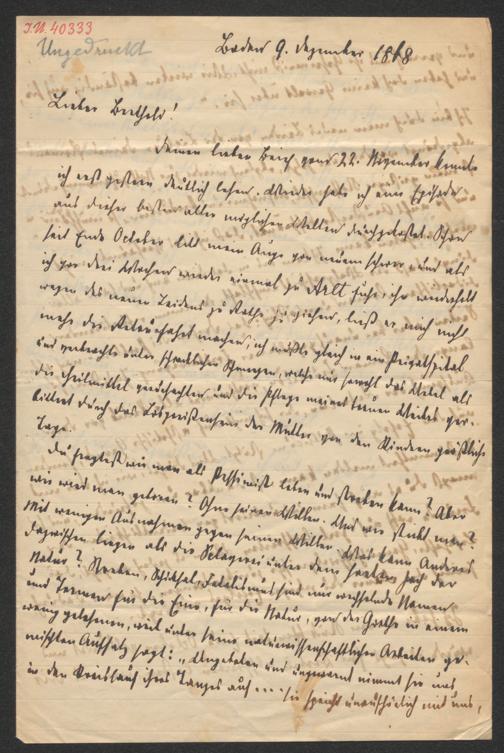 I.N. 40333
Ungedruckt
Baden 9. Dezember 1868
Lieber Berthold!
Deinen lieber Brief vom 22. November konnte
ich erst gestern deutlich lesen. Wieder habe ich eine Episode
aus dieser besten aller möglichen Welten durchgekostet. Schon
seit Ende October litt mein Auge von neuem schwer und als
ich vor drei Wochen wieder einmal zu Arlt fuhr, ihn
wegen des neuen Leidens zu Rathe zu ziehen, ließ er mich nicht
mehr die Retourfahrt machen, ich mußte gleich in ein Privatspital
und verbrachte unter schrecklichen Schmerzen, welche mir sowohl das Übel als
die Heilmittel verursachten und die Pflege meines treuen Weibes ver-
bittert durch das Losgerissensein der Mutter von den Kindern gräßliche
Tage.
Du fragtest wie man als Pessimist leben und streben kann? Aber
wie wird man geboren? Ohne seinen Willen. Und wie stirbt man?
Mit wenigen Ausnahmen gegen seinen Willen. Was kann Anderes
dazwischen liegen als die Sclaverei unter dem harten Joch der
Natur? Streben, Schicksal, Fatalismus sind nur wechselnde Namen
und Formen für die Eine, für die Natur, von der Goethe in einem
wenig gelesenen, weil unter seine naturwissenschaftlichen Arbeiten ge-
mischten Aufsatz sagt: „Ungebeten und ungewarnt nimmt sie uns
in den Kreislauf ihres Tanzes auf .... sie spricht unaufhörlich mit uns,